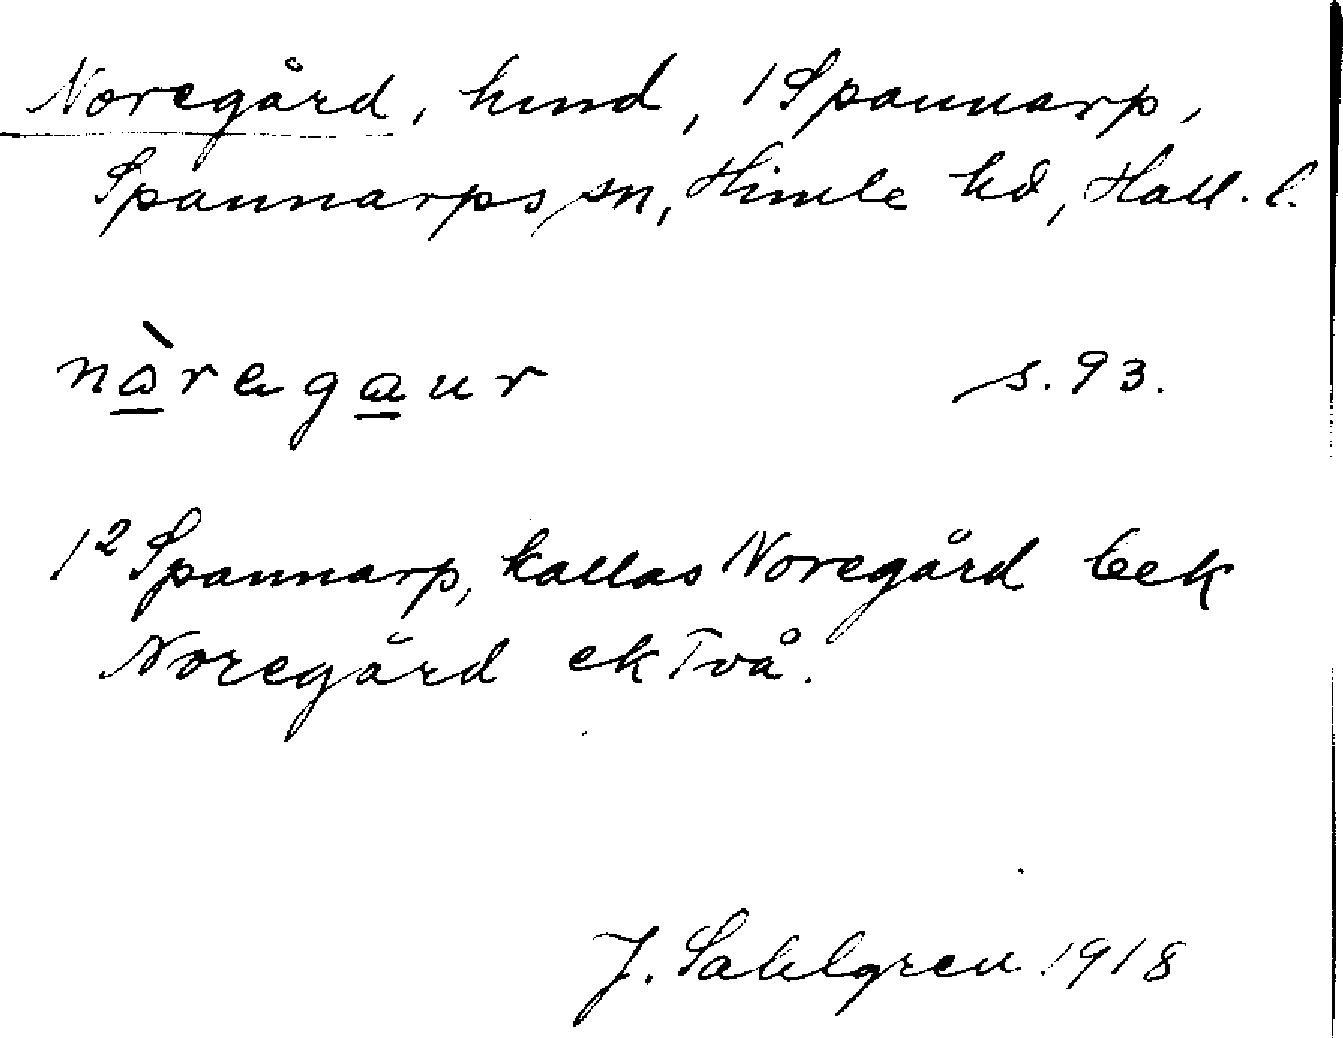 Noregård, hmd, 1 Spannarp,
Spannarps sn, Himle hd, Hall. l.
nàregaur s. 93.
1² Spannarp, kallas Noregård bek
Noregård ek Två.
J. Sahlgren 1918